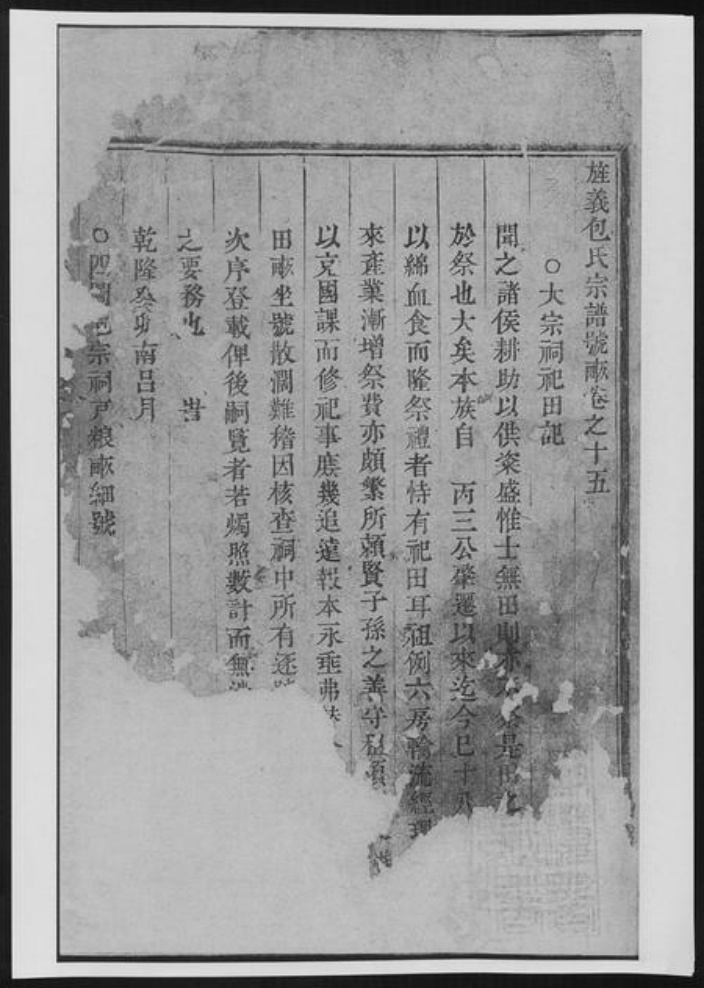 旌義包氏宗譜號畝卷之十五
○大宗祠祀田記
聞之諸侯耕助以供粢盛惟士無田則亦不祭是田之
於祭也大矣本族自 丙三公肇遷以來迄今已十八
以綿血食而隆祭禮者恃有祀田耳祖例六房輪流經理
來產業漸增祭費亦頗繁所賴賢子孫之善守租
以克國課而修祀事庶幾追遠報本永垂弗替
田畝坐號散濶難稽因核查祠中所有逐
次序登載俾後嗣覽者若燭照數計而無
之要務也 旹
乾隆癸卯南呂月
宗祠戸粮畝細號